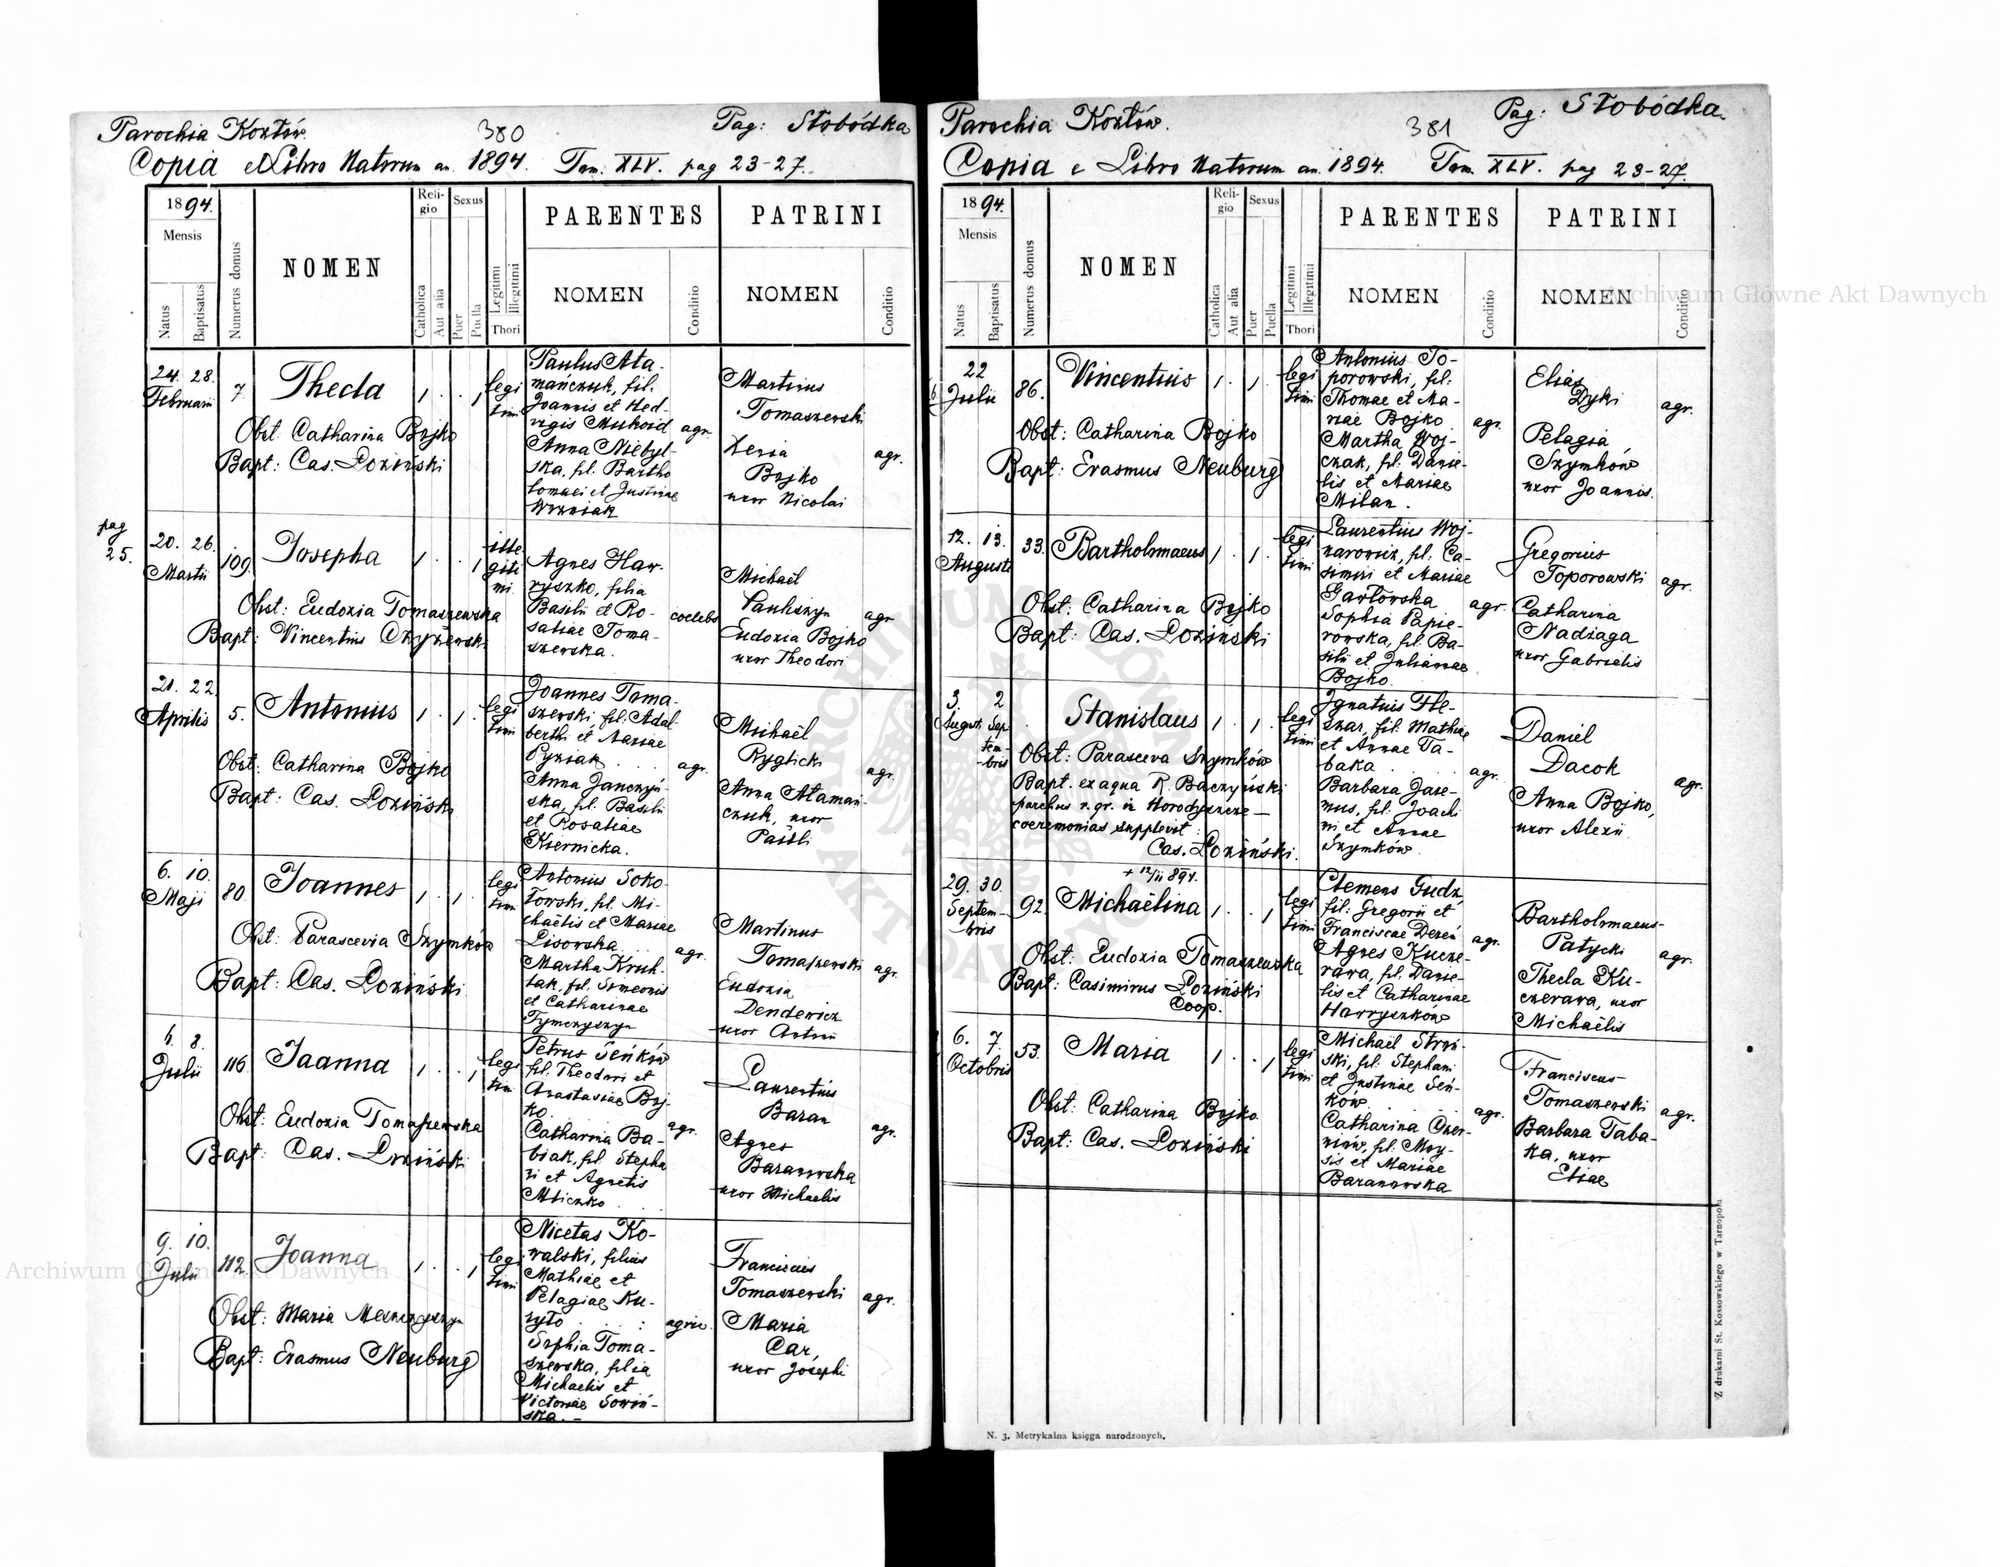 Parochia Kozłów. 380 Pag: Słobódka
Copia e Libro Natorum an. 1894. Tom. XLV. pag 23-27.
1894.
Mensis
Natus
Baptisatus
Numerus domus
NOMEN
Religio
Catholica
Aut alia
Sexus
Puer
Puella
Legitimi
Illegitimi
Thori
PARENTES
NOMEN
Conditio
PATRINI
NOMEN
Conditio
24. 28. Februarii
7
Thecla
1 . . 1
legi
timi
Obst: Catharina Bojko
Bapt: Cas. Łoziński
Paulus Ata-
mańczuk, fil.
Joannis et Hed-
vigis Mukoid agr.
Anna Niebyl-
ska, fil. Bartho
lomaei et Justinae
Woźniak
Martinus
Tomaszewski
Xenia agr.
Bojko
uxor Nicolai
pag
25.
20. 26.
Martii
109.
Josepha
1 . . 1
ille
giti
mi
Obst: Eudoxia Tomaszewska
Bapt: Vincentius Czyżewski
Agnes Haw-
ryszko, filia
Basilii et Ro- coelebs
saliae Toma-
szewska.
Michaël
Pauliszyn agr
Eudoxia Bojko
uxor Theodori
21. 22
Aprilis
5.
Antonius
1 . 1 .
legi
timi
Obst: Catharina Bojko
Bapt: Cas. Łoziński
Joannes Toma-
szewski, fil. Adal
berthi et Mariae
Pyziak agr.
Anna Janczyń
ska, fil. Basilii
et Rosaliae
Kiernicka.
Michaël
Ryglicki agr.
Anna Atamań-
czuk, uxor
Paüli
6. 10.
Maji
80.
Joannes
1 . 1 .
legi
timi
Obst: Parascevia Szymków
Bapt: Cas. Łoziński
Antonius Soko
łowski, fil. Mi-
chaëlis et Mariae
Lisowska agr.
Martha Kruh-
lak, fil. Simeonis
et Catharinae
Tymczyszyn
Martinus
Tomaszewski agr.
Eudoxia
Dendewicz
uxor Antonii
6. 8.
Julii
116
Joanna
1 . . 1
legi
timi
Obst: Eudoxia Tomaszewska
Bapt: Cas. Łoziński
Petrus Seńków
fil. Theodori et
Anastasiae Boj-
ko agr.
Catharina Ba-
biak, fil. Stepha
ni et Agnetis
Mliczko
Laurentius
Baran agr.
Agnes
Baranowska
uxor Michaëlis
9. 10.
Julii
112.
Joanna
1 . . 1
legi
timi
Obst: Maria
Bapt: Erasmus Neuburg
Nicetas Ko-
walski, filius
Mathiae et
Pelagiae Ku-
zyło agric.
Sophia Toma-
szewska, filia
Michaelis et
Victoriae Sowiń-
ska.
Franciscus
Tomaszewski agr.
Maria
Car,
uxor Josephi
Parochia Kozłów. 381 Pag: Słobódka
Copia e Libro Natorum an. 1894. Tom. XLV. pag 23-27.
1894.
Mensis
Natus
Baptisatus
Numerus domus
NOMEN
Religio
Catholica
Aut alia
Sexus
Puer
Puella
Legitimi
Illegitimi
Thori
PARENTES
NOMEN
Conditio
PATRINI
NOMEN
Conditio
22
Julii
86.
Vincentius
1 . 1 .
legi
timi
Obst: Catharina Bojko
Bapt: Erasmus Neuburg
Antonius To-
porowski, fil:
Thomae et Ma-
riae Bojko agr.
Martha Woj-
czak, fil: Danie-
lis et Mariae
Milan.
Elias
Dyki agr.
Pelagia
Szymków
uxor Joannis.
12. 13.
Augusti
33.
Bartholomaeus
1 . 1 .
legi
timi
Obst: Catharina Bojko
Bapt: Cas. Łoziński
Laurentius Woj-
narowicz, fil: Ca-
simiri et Mariae
Gawłowska agr.
Sophia Papie-
rowska, fil. Ba-
silii et Julianae
Bojko.
Gregorius
Toporowski agr.
Catharina
Nadiaga
uxor Gabrielis
3. 2
Augusti Sep-
tem-
bris
Stanislaus
1 . 1 .
legi
timi
Obst: Parasceva Szymków
Bapt. ex aqua R. Baczyński
parchus r. gr. in Horodyszcze—
coeremonias supplevit:
Cas. Łoziński.
Ignatius He-
szar, fil: Mathiae
et Annae Ta-
baka agr.
Barbara Jare-
mus, fil: Joachi
mi et Annae
Szymków.
Daniël
Dacok agr.
Anna Bojko,
uxor Alexii
29. 30.
Septem-
bris
92.
+ 12/11 894.
Michaëlina
1 . . 1
legi
timi
Obst: Eudoxia Tomaszewska
Bapt: Casimirus Łoziński
Coop.
Clemens Gudz,
fil: Gregorii et
Franciscae Dereń agr.
Agnes Kucze-
rawa, fil. Danie-
lis et Catharinae
Hawryszków
Bartholomaeus
Patycki agr.
Thecla Ku-
czerawa, uxor
Michaëlis
6. 7.
Octobris
53.
Maria
1 . . 1
legi
timi
Obst: Catharina Bojko.
Bapt: Cas. Łoziński
Michaël Stroń-
ski, fil. Stephani
et Justinae Seń-
ków agr.
Catharina Czer-
niów, fil. Moy-
sis et Mariae
Baranowska
Franciscus
Tomaszewski agr.
Barbara Taba-
ka, uxor
Eliae
N. 3. Metrykalna księga narodzonych.
Z drukarni St. Kossowskiego w Tarnopolu
Archiwum Główne Akt Dawnych
Archiwum Główne Akt Dawnych
ARCHIWUM GŁÓWNE AKT DAWNYCH